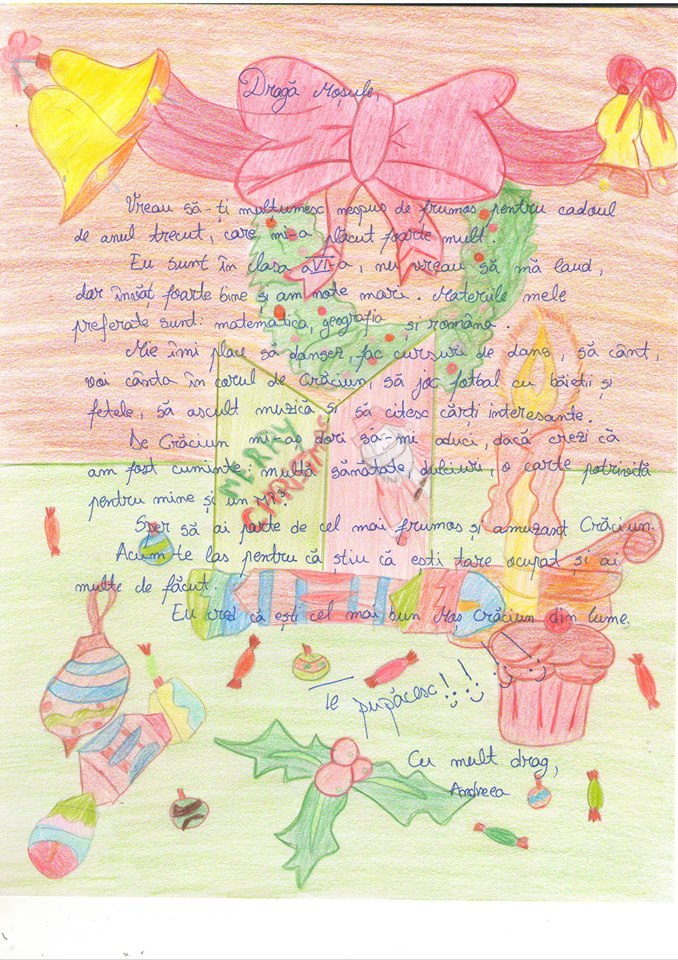 Dragă Moșule,
Vreau să-ți mulțumesc nespus de frumos pentru cadoul
de anul trecut, care mi-a plăcut foarte mult.
Eu sunt în clasa a VI-a, nu vreau să mă laud,
dar învăț foarte bine și am note mari. Materiile mele
preferate sunt: matematica, geografia și româna.
Mie îmi place să dansez, fac cursuri de dans, să cânt,
voi cânta în corul de Crăciun, să joc fotbal cu băieții și
fetele, să ascult muzică și să citesc cărți interesante.
De Crăciun mi-aș dori să-mi aduci, dacă crezi că
am fost cuminte: multă sănătate, dulciuri, o carte potrivită
pentru mine și un MP3.
MERRY
CHRISTMAS
Sper să ai parte de cel mai frumos și amuzant Crăciun.
Acum te las pentru că știu că ești tare ocupat și ai
multe de făcut.
Eu cred că ești cel mai bun Moș Crăciun din lume.
Te pupăcesc!!!
Cu mult drag,
Andreea